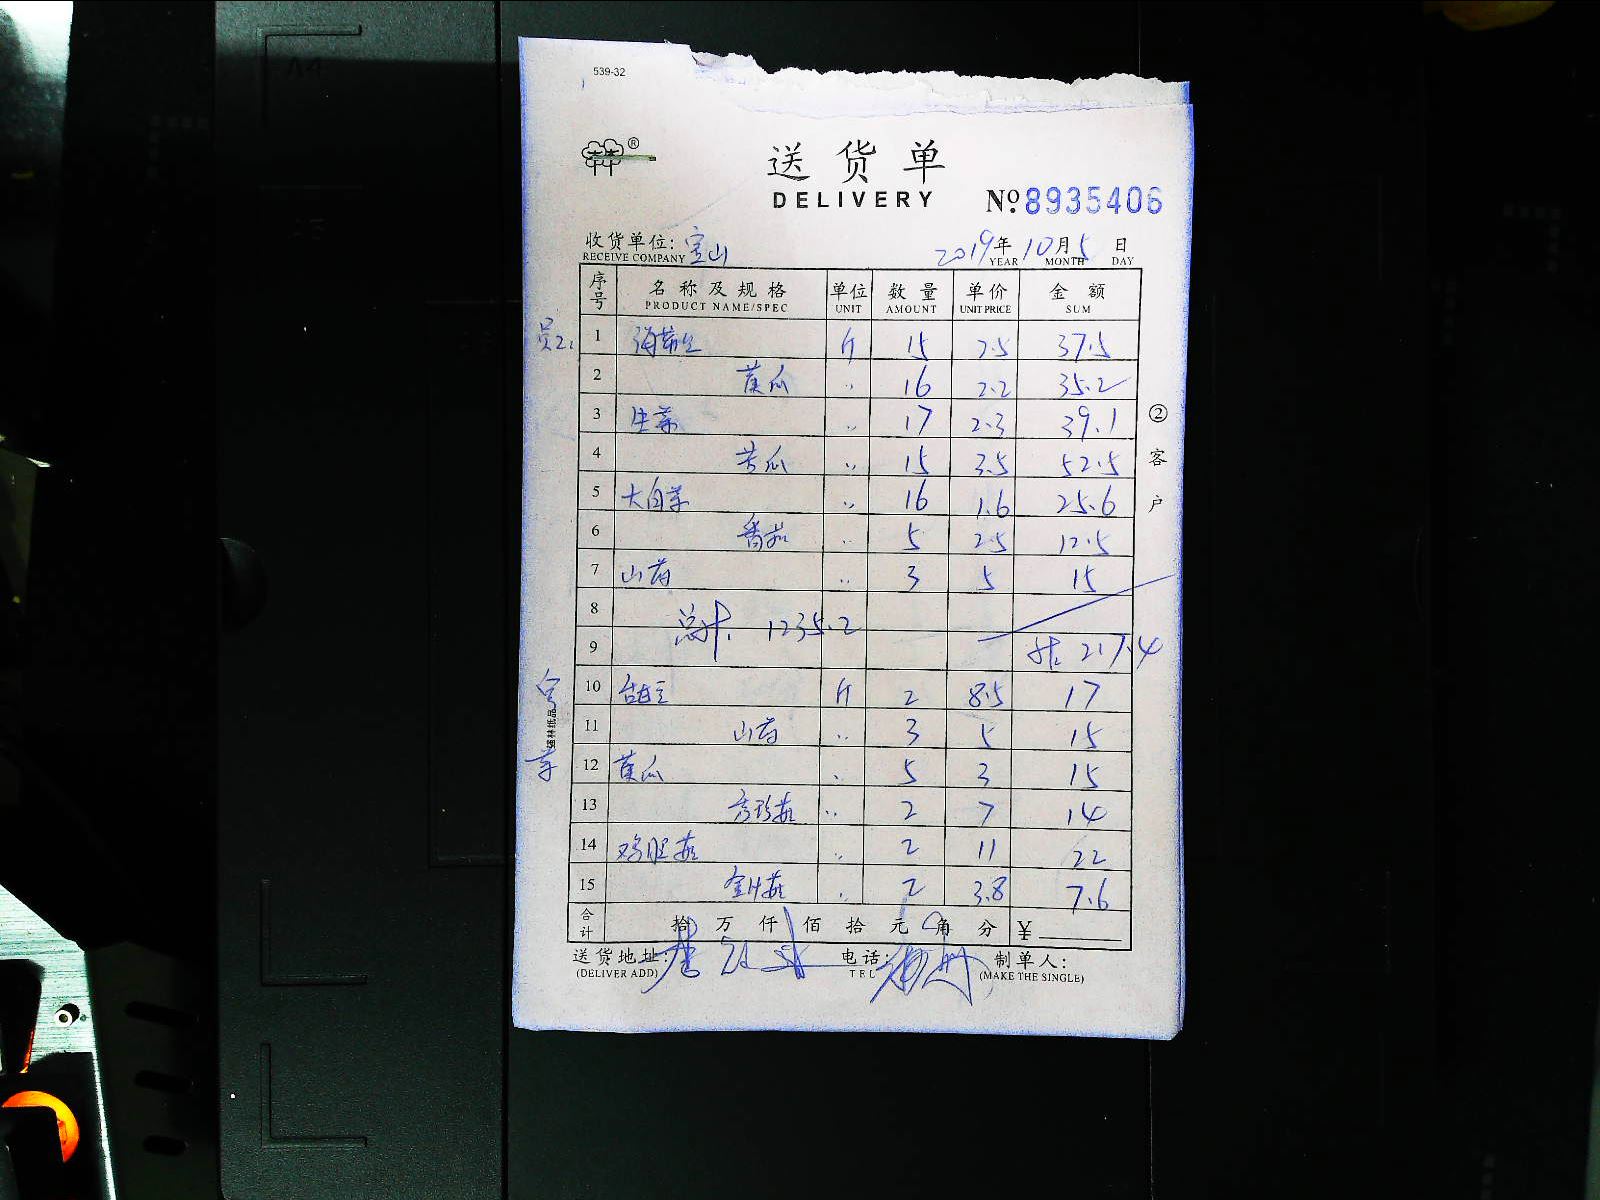 539-32
送货单
DELIVERY
№ 8935406
收货单位: 宝山 2019年10月5日
RECEIVE COMPANY YEAR MONTH DAY
序号 名称及规格 单位 数量 单价 金额
PRODUCT NAME/SPEC UNIT AMOUNT UNIT PRICE SUM
员工 1 海带丝 斤 15 2.5 37.5
2 黄瓜 〃 16 2.2 35.2
3 生菜 〃 17 2.3 39.1
4 苦瓜 〃 15 3.5 52.5
5 大白菜 〃 16 1.6 25.6
6 番茄 〃 5 2.5 12.5
7 山药 〃 3 5 15
8 总计 1235.2
9 217.4
10 斤 2 8.5 17
11 山药 〃 3 5 15
12 黄瓜 〃 5 3 15
13 秀珍菇 〃 2 7 14
14 鸡腿菇 〃 2 11 22
15 金针菇 〃 2 3.8 7.6
合计 拾 万 仟 佰 拾 元 角 分 ¥
送货地址: 电话: 制单人:
(DELIVER ADD) TEL (MAKE THE SINGLE)
②客户
强林纸品